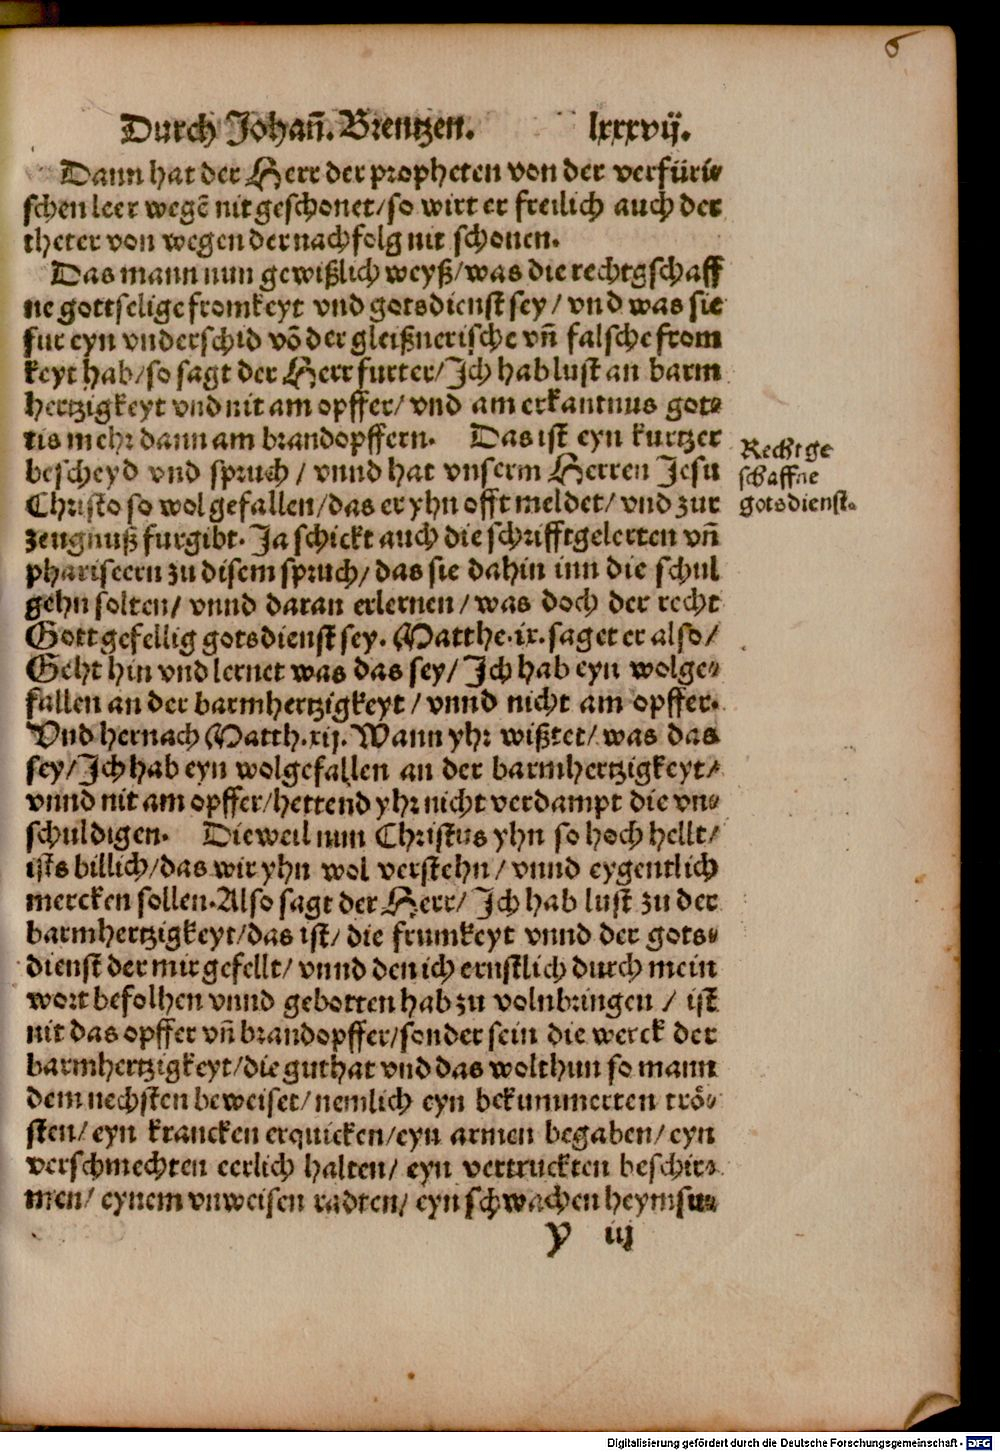 6
Durch Johañ. Brentzen. lxxxvij.
Dann hat der Herr der propheten von der verfüri⸗
schen leer wegẽ nit geschonet/so wirt er freilich auch der
theter von wegen der nachfolg nit schonen.
Das mann nun gewißlich weyß/was die rechtgschaff
ne gottselige fromkeyt vnd gotsdienst sey/ vnd was sie
fur eyn vnderschid võ der gleißnerische vñ falsche from
keyt hab/so sagt der Herr furter/Ich hab lust an barm
hertzigkeyt vnd nit am opffer/ vnd am erkantnus got⸗
tis mehr dann am brandopffern. Das ist eyn kurtzer
bescheyd vnd spruch / vnnd hat vnserm Herren Jesu
Christo so wol gefallen/das er yhn offt meldet/ vnd zur
zeugnuß furgibt. Ja schickt auch die schrifftgelerten vñ
phariseern zu disem spruch/das sie dahin inn die schul
gehn solten/ vnnd daran erlernen/was doch der recht
Gott gefellig gotsdienst sey. Matthe.ix. saget er also/
Geht hin vnd lernet was das sey/ Ich hab eyn wolge⸗
fallen an der barmhertzigkeyt / vnnd nicht am opffer.
Vnd hernach Matth.xij. Wann yhr wißtet/was das
sey/Ich hab eyn wolgefallen an der barmhertzigkeyt/
vnnd nit am opffer/hettend yhr nicht verdampt die vn⸗
schuldigen. Dieweil nun Christus yhn so hoch hellt/
ists billich/das wir yhn wol verstehn/ vnnd eygentlich
mercken sollen. Also sagt der Herr/ Ich hab lust zu der
barmhertzigkeyt/das ist/ die frumkeyt vnnd der gots⸗
dienst der mir gefellt/ vnnd den ich ernstlich durch mein
wort befolhen vnnd gebotten hab zu volnbringen / ist
nit das opffer vñ brandopffer/sonder sein die werck der
barmhertzigkeyt/die guthat vnd das wolthun so mann
dem nechsten beweiset/nemlich eyn bekummerten trö⸗
sten/ eyn krancken erquicken/eyn armen begaben/ eyn
verschmechten eerlich halten/ eyn vertruckten beschir⸗
men/ eynem vnweisen radten/ eyn schwachen heymsu⸗
y iij
Rechtge
schaffne
gotsdienst.
Digitalisierung gefördert durch die Deutsche Forschungsgemeinschaft - DFG